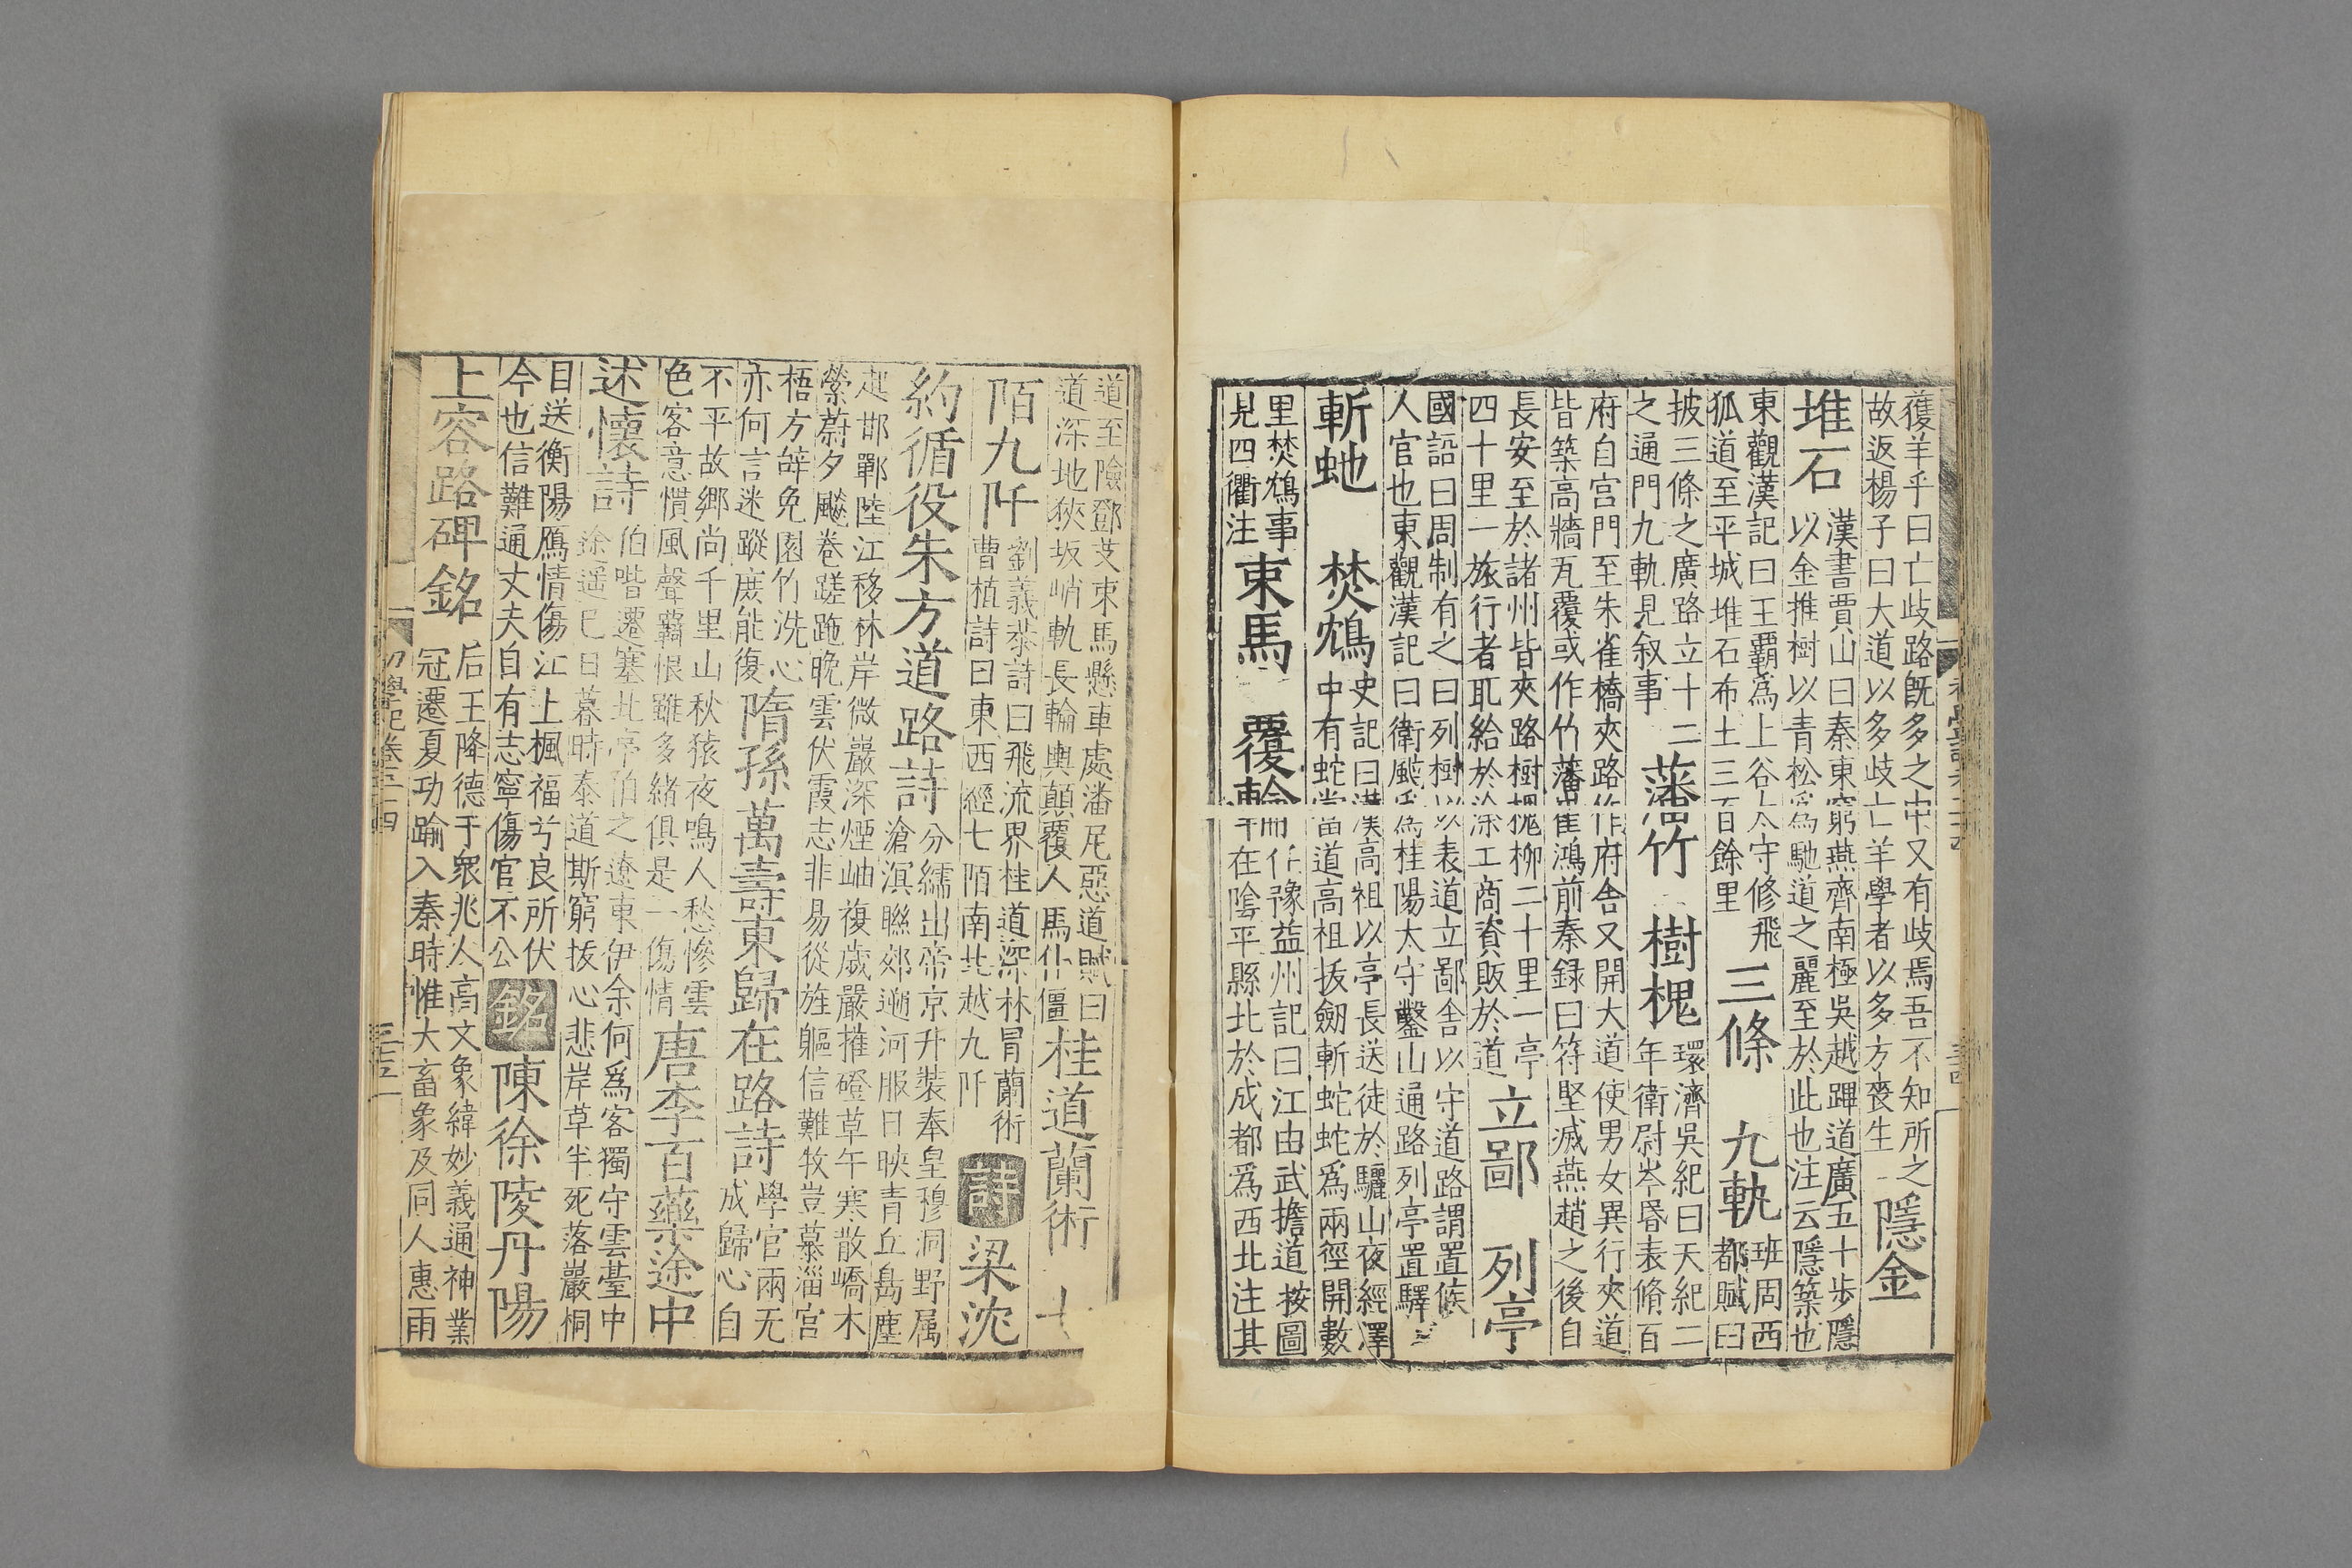 獲羊乎曰亡歧路旣多之中又有歧焉吾不知所之
故返楊子曰大道以多歧亡羊學者以多方喪生
隱金
堆石
漢書賈山曰秦東窮燕齊南極吳越蹕道廣五十步隱
以金推樹以青松爲馳道之麗至於此也注云隱築也
東觀漢記曰王霸爲上谷太守修飛
狐道至平城堆石布土三百餘里
三條 九軌
班周西
都賦曰
披三條之廣路立十二
之通門九軌見叙事
藩竹 樹槐
環濟吳紀曰天紀二
年衛尉岑昏表脩百
府自宮門至朱雀橋夾路作府舍又開大道使男女異行夾道
皆築高牆瓦覆或作竹藩崔鴻前秦録曰符堅滅燕趙之後自
長安至於諸州皆夾路樹槐柳二十里一亭
四十里一旅行者取給於途工商資販於道
立鄙 列亭
國語曰周制有之曰列樹以表道立鄙舍以守道路謂置候
人官也東觀漢記曰衛颯爲桂陽太守鑿山通路列亭置驛
斬虵 焚鵂
史記曰漢高祖以亭長送徒於驪山夜經澤
中有蛇當道高祖拔劒斬蛇蛇爲兩徑開數
里焚鵂事
見四衢注
束馬 覆輪
任豫益州記曰江由武擔道按圖
在陰平縣北於成都爲西北注其
道至險鄧艾束馬懸車處潘尼惡道賦曰
道深地狹坂峭軌長輪輿顛覆人馬仆僵
桂道 蘭術
陌九阡
劉義恭詩曰飛流界桂道深林冒蘭術
曹植詩曰東西經七陌南北越九阡
詩
梁沈
約循役朱方道路詩
分繻出帝京升裝奉皇穆洞野属
滄溟聯郊遡河服日映青丘島塵
起邯鄲陸江移林岸微巖深煙岫複歲嚴摧磴草午寒散嶠木
縈蔚夕飈卷蹉跎晚雲伏霞志非易從旌軀信難牧豈慕淄宮
梧方辞兔園竹洗心
亦何言迷蹤庶能復
隋孫萬壽東歸在路詩
學官兩无
成歸心自
不平故鄉尚千里山秋猿夜鳴人愁慘雲
色客意慣風聲羈恨雖多緒俱是一傷情
唐李百藥途中
述懷詩
伯喈遷塞北亭伯之遼東伊余何爲客獨守雲臺中
途遥已日暮時泰道斯窮拔心悲岸草半死落巖桐
目送衡陽鴈情傷江上楓福兮良所伏
今也信難通丈夫自有志寧傷官不公
銘
陳徐陵丹陽
上容路碑銘
后王降德于衆兆人高文象緯妙義通神業
冠遷夏功踰入秦時惟大畜象及同人惠雨
初學記卷二十四